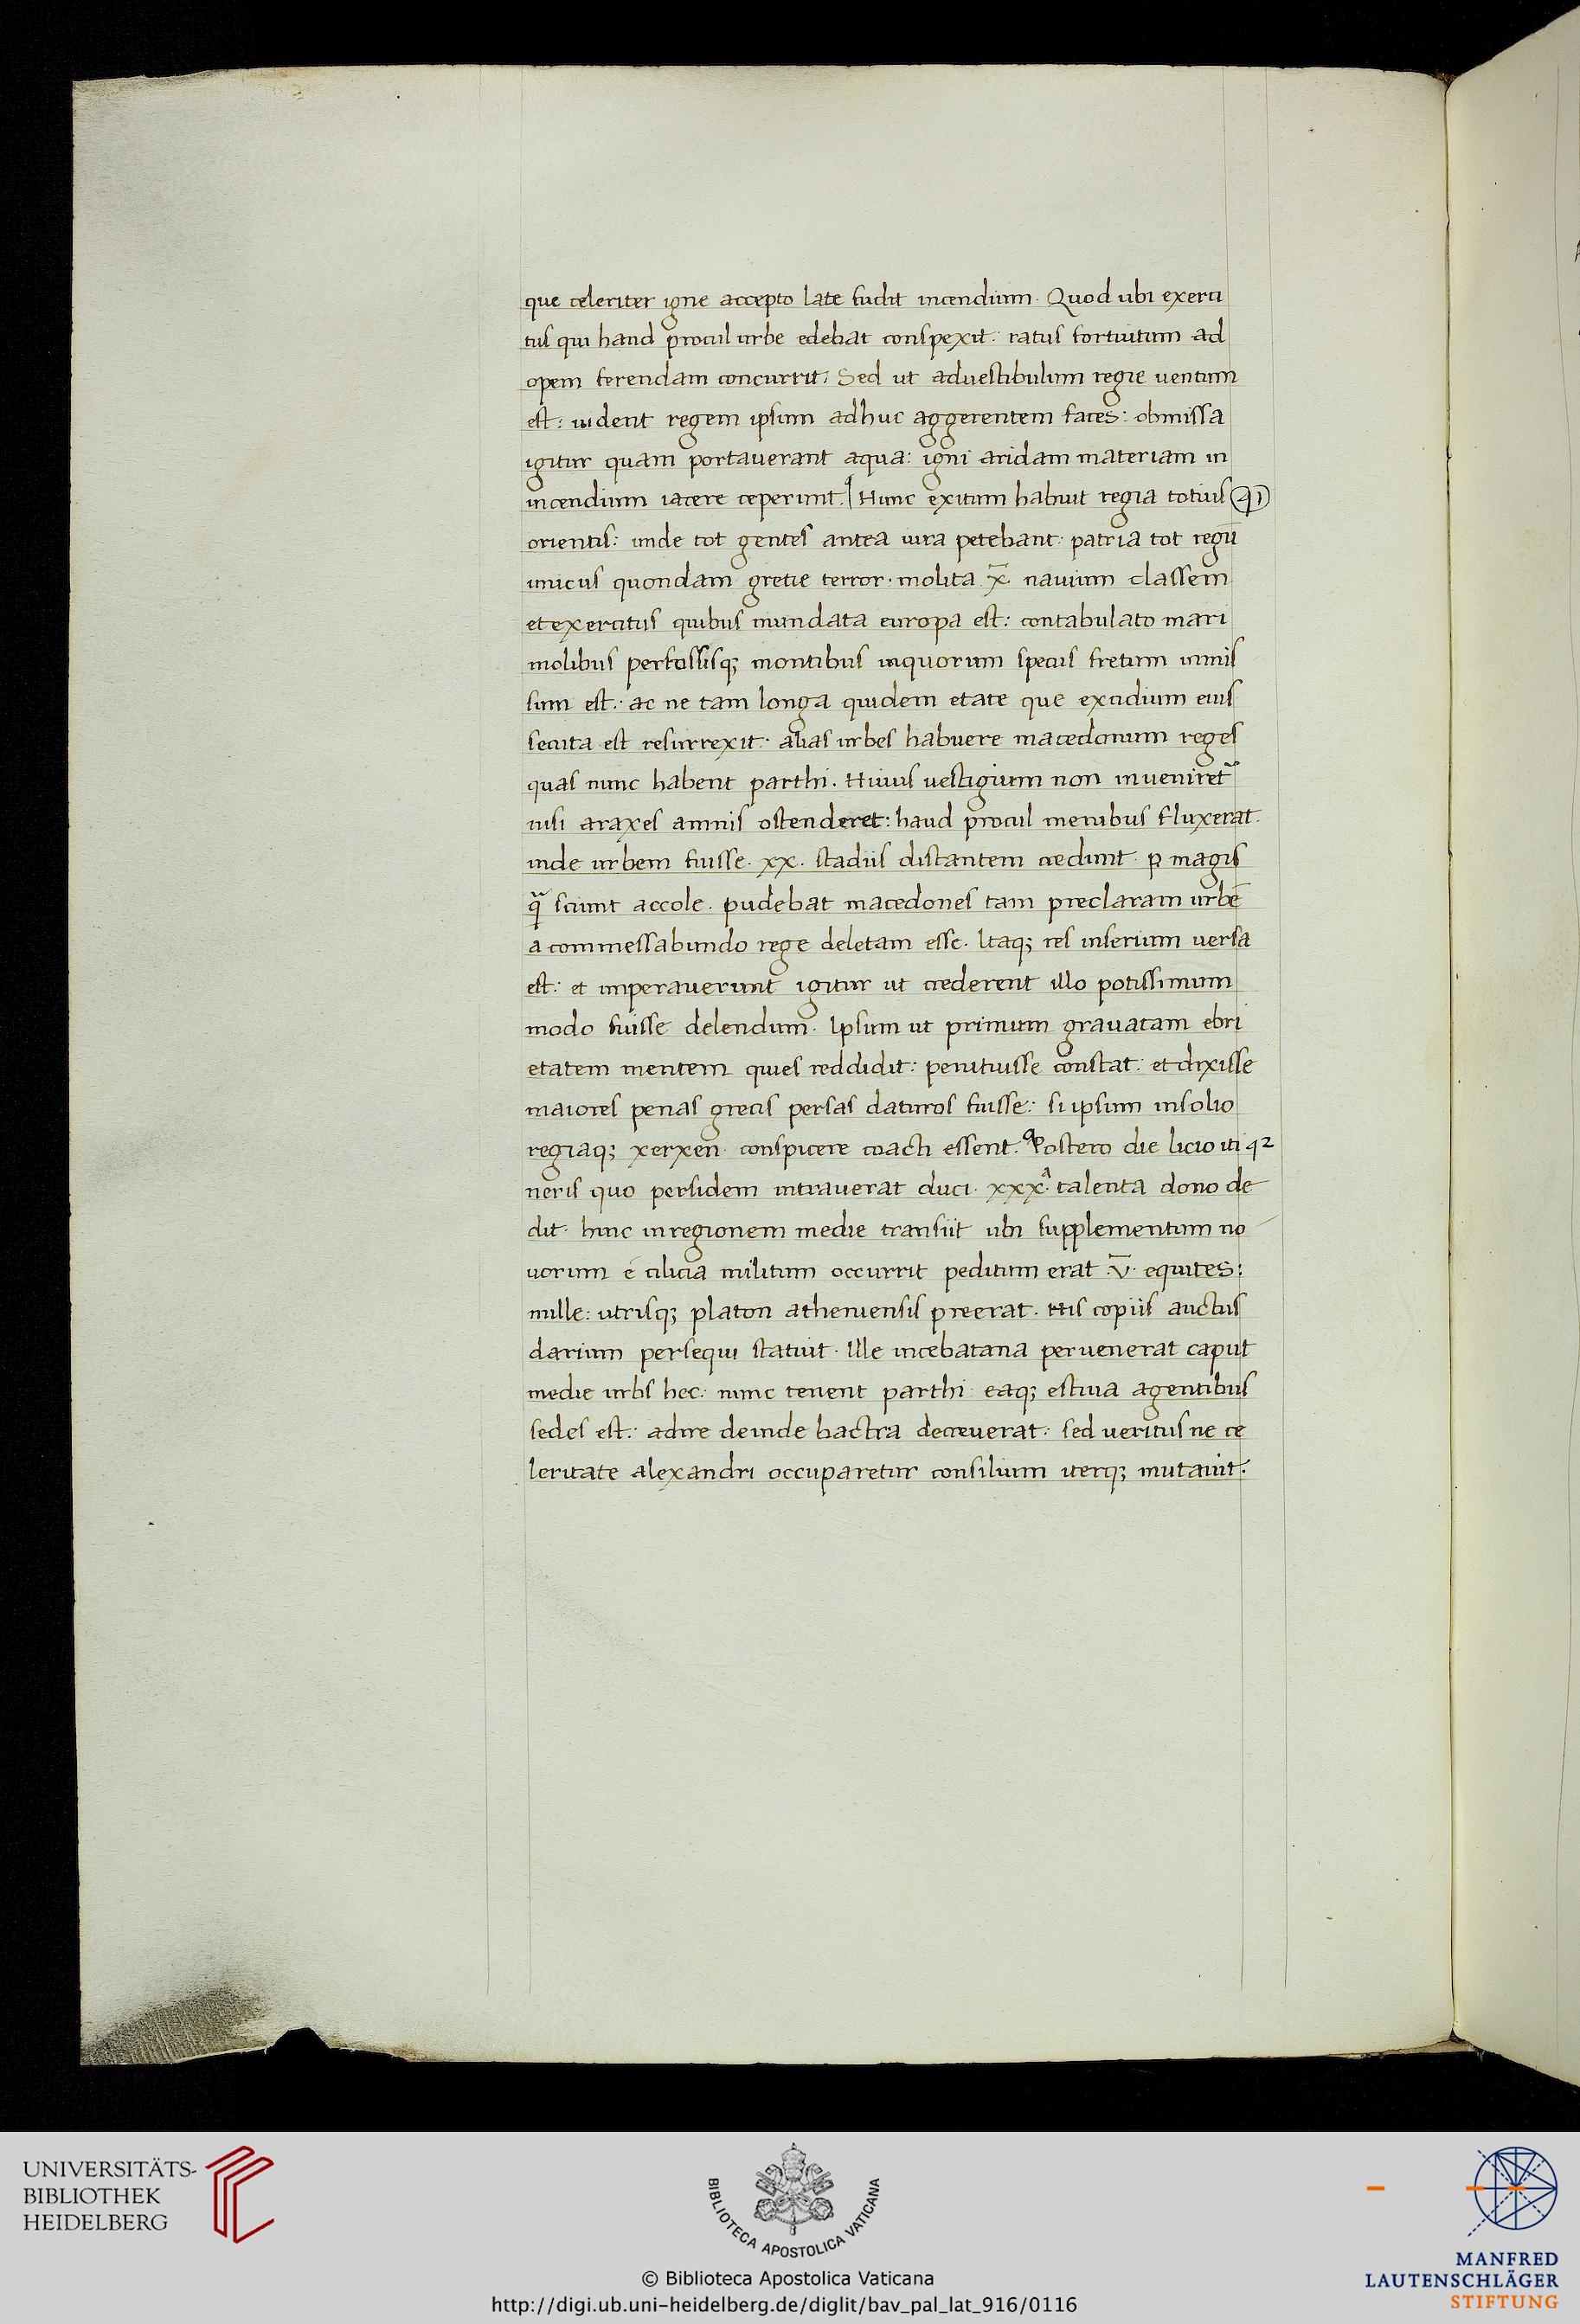 que celeriter igne accepto late fudit incendium. Quod ubi exerci
tus qui haud procul urbe edebat conspexit: ratus fortuitum ad
opem ferendam concurrit. Sed ut advestibulum regie ventum
est: vident regem ipsum adhuc aggerentem faces: obmissa
igitur quam portaverant aqua: igni aridam materiam in
incendium iacere ceperunt. Hunc exitum habuit regia totius q1
orientis: unde tot gentes antea iura petebant: patria tot regū
unicus quondam gretie terror. molita x̄. navium classem
et exercitus quibus mundata europa est: contabulato mari
molibus perfossisq; montibus inquorum specus fretum inmis
sum est: ac ne tam longa quidem etate que excidium eius
secuta est resurrexit: alias urbes habuere macedonum reges
quas nunc habent parthi. Huius vestigium non inveniret
nisi araxes amnis ostenderet: haud procul menibus fluxerat.
inde urbem fuisse .xx. stadiis distantem credunt p magis
q̄ sciunt accole. pudebat macedones tam preclaram urbē
a commessabundo rege deletam esse. Itaq; res inserium versa
est: et imperaverunt igitur ut crederent illo potissimum
modo fuisse delendum. Ipsum ut primum gravatam ebri
etatem mentem quies reddidit: penituisse constat: et dixisse
maiores penas grecis persas daturos fuisse: si ipsum insolio
regiaq; xerxen conspicere coacti essent. Postero die licio iti q2
neris quo persidem intraverat duci .xxx. talenta dono de
dit. hinc inregionem medie transiit ubi supplementum no
vorum e cilicia militum occurrit peditum erat .v̄. equites:
mille: utrisq; platon atheniensis preerat. His copiis auctus
darium persequi statuit. Ille incebatana pervenerat caput
medie urbs hec: nunc tenent parthi eaq; estiva agentibus
sedes est: adire deinde bactra decreverat: sed veritus ne ce
leritate alexandri occuparetur consilium iterq; mutavit.
UNIVERSITÄTS-
BIBLIOTHEK
HEIDELBERG
BIBLIOTECA APOSTOLICA VATICANA
© Biblioteca Apostolica Vaticana
http://digi.ub.uni-heidelberg.de/diglit/bav_pal_lat_916/0116
MANFRED
LAUTENSCHLÄGER
STIFTUNG